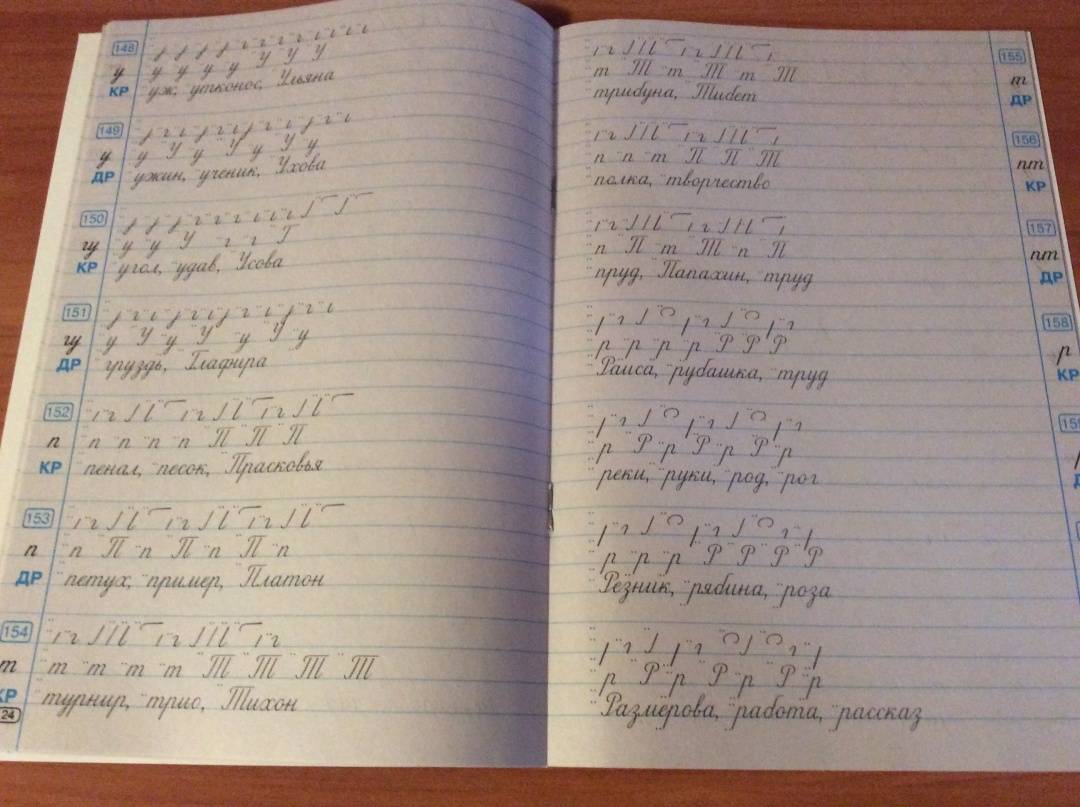 148
у
КР
у у у у У У У
уж, утконос, Ульяна
149
у
ДР
у У у У у У у
ужин, ученик, Ухова
150
гу
КР
у у У г г Г
угол, удав, Усова
151
гу
ДР
у У у У у У у
груздь, Глафира
152
п
КР
п п п п П П П
пенал, песок, Прасковья
153
п
ДР
п П п П п П п
петух, пример, Платон
154
т
КР
т т т т Т Т Т Т
турнир, трио, Тихон
24
155
т
ДР
т Т т Т т Т
трибуна, Тибет
156
пт
КР
п п т П П Т
полка, творчество
157
пт
ДР
п П т Т п П
пруд, Папахин, труд
158
р
КР
р р р р Р Р Р
Раиса, рубашка, труд
р Р р Р р Р р
реки, руки, род, рог
р р р Р Р Р Р
Резник, рябина, роза
р Р р Р р Р р
Размерова, работа, рассказ